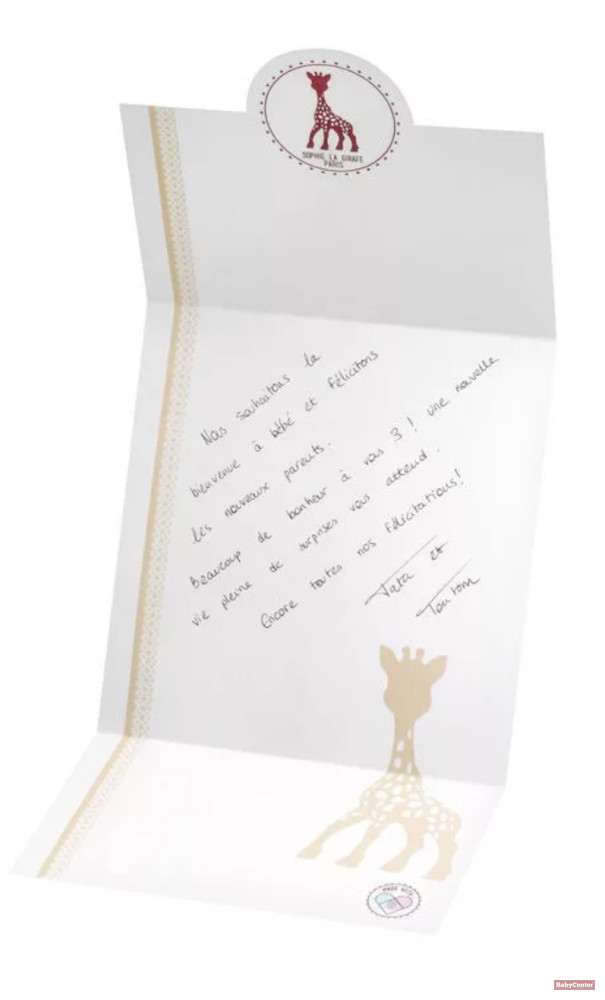 SOPHIE LA GIRAFE
PARIS
Nous souhaitons la
bienvenue à bébé et félicitons
les nouveaux parents.
Beaucoup de bonheur à vous 3 ! Une nouvelle
vie pleine de surprises vous attend.
Encore toutes nos félicitations !
Tata et
Tonton
MADE WITH
BabyCenter